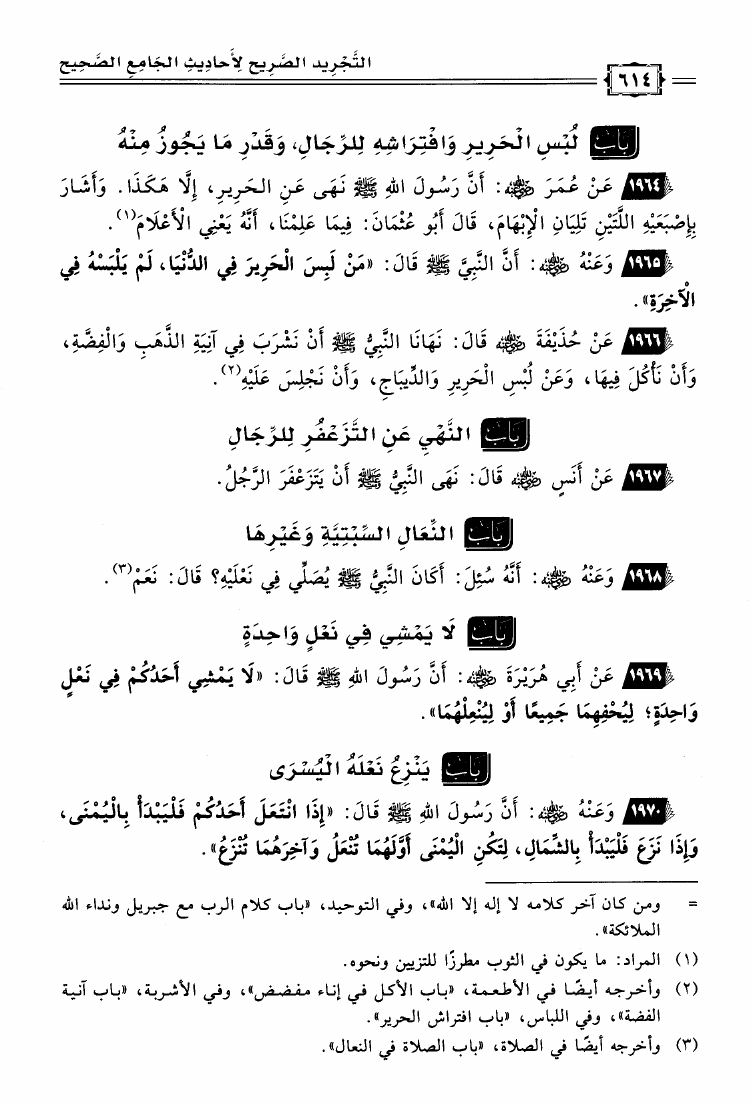 التَّجْرِيد الصَّرِيح لِأَحَادِيثِ الجَامِعِ الصَّحِيح
٦١٤
باب لُبْسِ الْحَرِيرِ وَافْتِرَاشِهِ لِلرِّجَالِ، وَقَدْرِ مَا يَجُوزُ مِنْهُ
١٩٦٤ عَنْ عُمَرَ ﵁: أَنَّ رَسُولَ اللهِ ﷺ نَهَى عَنِ الحَرِيرِ، إِلَّا هَكَذَا. وَأَشَارَ
بِإِصْبَعَيْهِ اللَّتَيْنِ تَلِيَانِ الْإِبْهَامَ، قَالَ أَبُو عُثْمَانَ: فِيمَا عَلِمْنَا، أَنَّهُ يَعْنِي الْأَعْلَامَ(١).
١٩٦٥ وَعَنْهُ ﵁: أَنَّ النَّبِيَّ ﷺ قَالَ: «مَنْ لَبِسَ الْحَرِيرَ فِي الدُّنْيَا، لَمْ يَلْبَسْهُ فِي
الْآخِرَةِ».
١٩٦٦ عَنْ حُذَيْفَةَ ﵁ قَالَ: نَهَانَا النَّبِيُّ ﷺ أَنْ نَشْرَبَ فِي آنِيَةِ الذَّهَبِ وَالْفِضَّةِ،
وَأَنْ نَأْكُلَ فِيهَا، وَعَنْ لُبْسِ الْحَرِيرِ وَالدِّيبَاجِ، وَأَنْ نَجْلِسَ عَلَيْهِ(٢).
باب النَّهْيِ عَنِ التَّزَعْفُرِ لِلرِّجَالِ
١٩٦٧ عَنْ أَنَسٍ ﵁ قَالَ: نَهَى النَّبِيُّ ﷺ أَنْ يَتَزَعْفَرَ الرَّجُلُ.
باب النِّعَالِ السِّبْتِيَّةِ وَغَيْرِهَا
١٩٦٨ وَعَنْهُ ﵁: أَنَّهُ سُئِلَ: أَكَانَ النَّبِيُّ ﷺ يُصَلِّي فِي نَعْلَيْهِ؟ قَالَ: نَعَمْ(٣).
باب لَا يَمْشِي فِي نَعْلٍ وَاحِدَةٍ
١٩٦٩ عَنْ أَبِي هُرَيْرَةَ ﵁: أَنَّ رَسُولَ اللهِ ﷺ قَالَ: «لَا يَمْشِي أَحَدُكُمْ فِي نَعْلٍ
وَاحِدَةٍ؛ لِيُحْفِهِمَا جَمِيعًا أَوْ لِيُنْعِلْهُمَا».
باب يَنْزِعُ نَعْلَهُ الْيُسْرَى
١٩٧٠ وَعَنْهُ ﵁: أَنَّ رَسُولَ اللهِ ﷺ قَالَ: «إِذَا انْتَعَلَ أَحَدُكُمْ فَلْيَبْدَأْ بِالْيُمْنَى،
وَإِذَا نَزَعَ فَلْيَبْدَأْ بِالشِّمَالِ، لِتَكُنِ الْيُمْنَى أَوَّلَهُمَا تُنْعَلُ وَآخِرَهُمَا تُنْزَعُ».
= ومن كان آخر كلامه لا إله إلا الله»، وفي التوحيد، «باب كلام الرب مع جبريل ونداء الله
الملائكة».
(١) المراد: ما يكون في الثوب مطرزًا للتزيين ونحوه.
(٢) وأخرجه أيضًا في الأطعمة، «باب الأكل في إناء مفضض»، وفي الأشربة، «باب آنية
الفضة»، وفي اللباس، «باب افتراش الحرير».
(٣) وأخرجه أيضًا في الصلاة، «باب الصلاة في النعال».